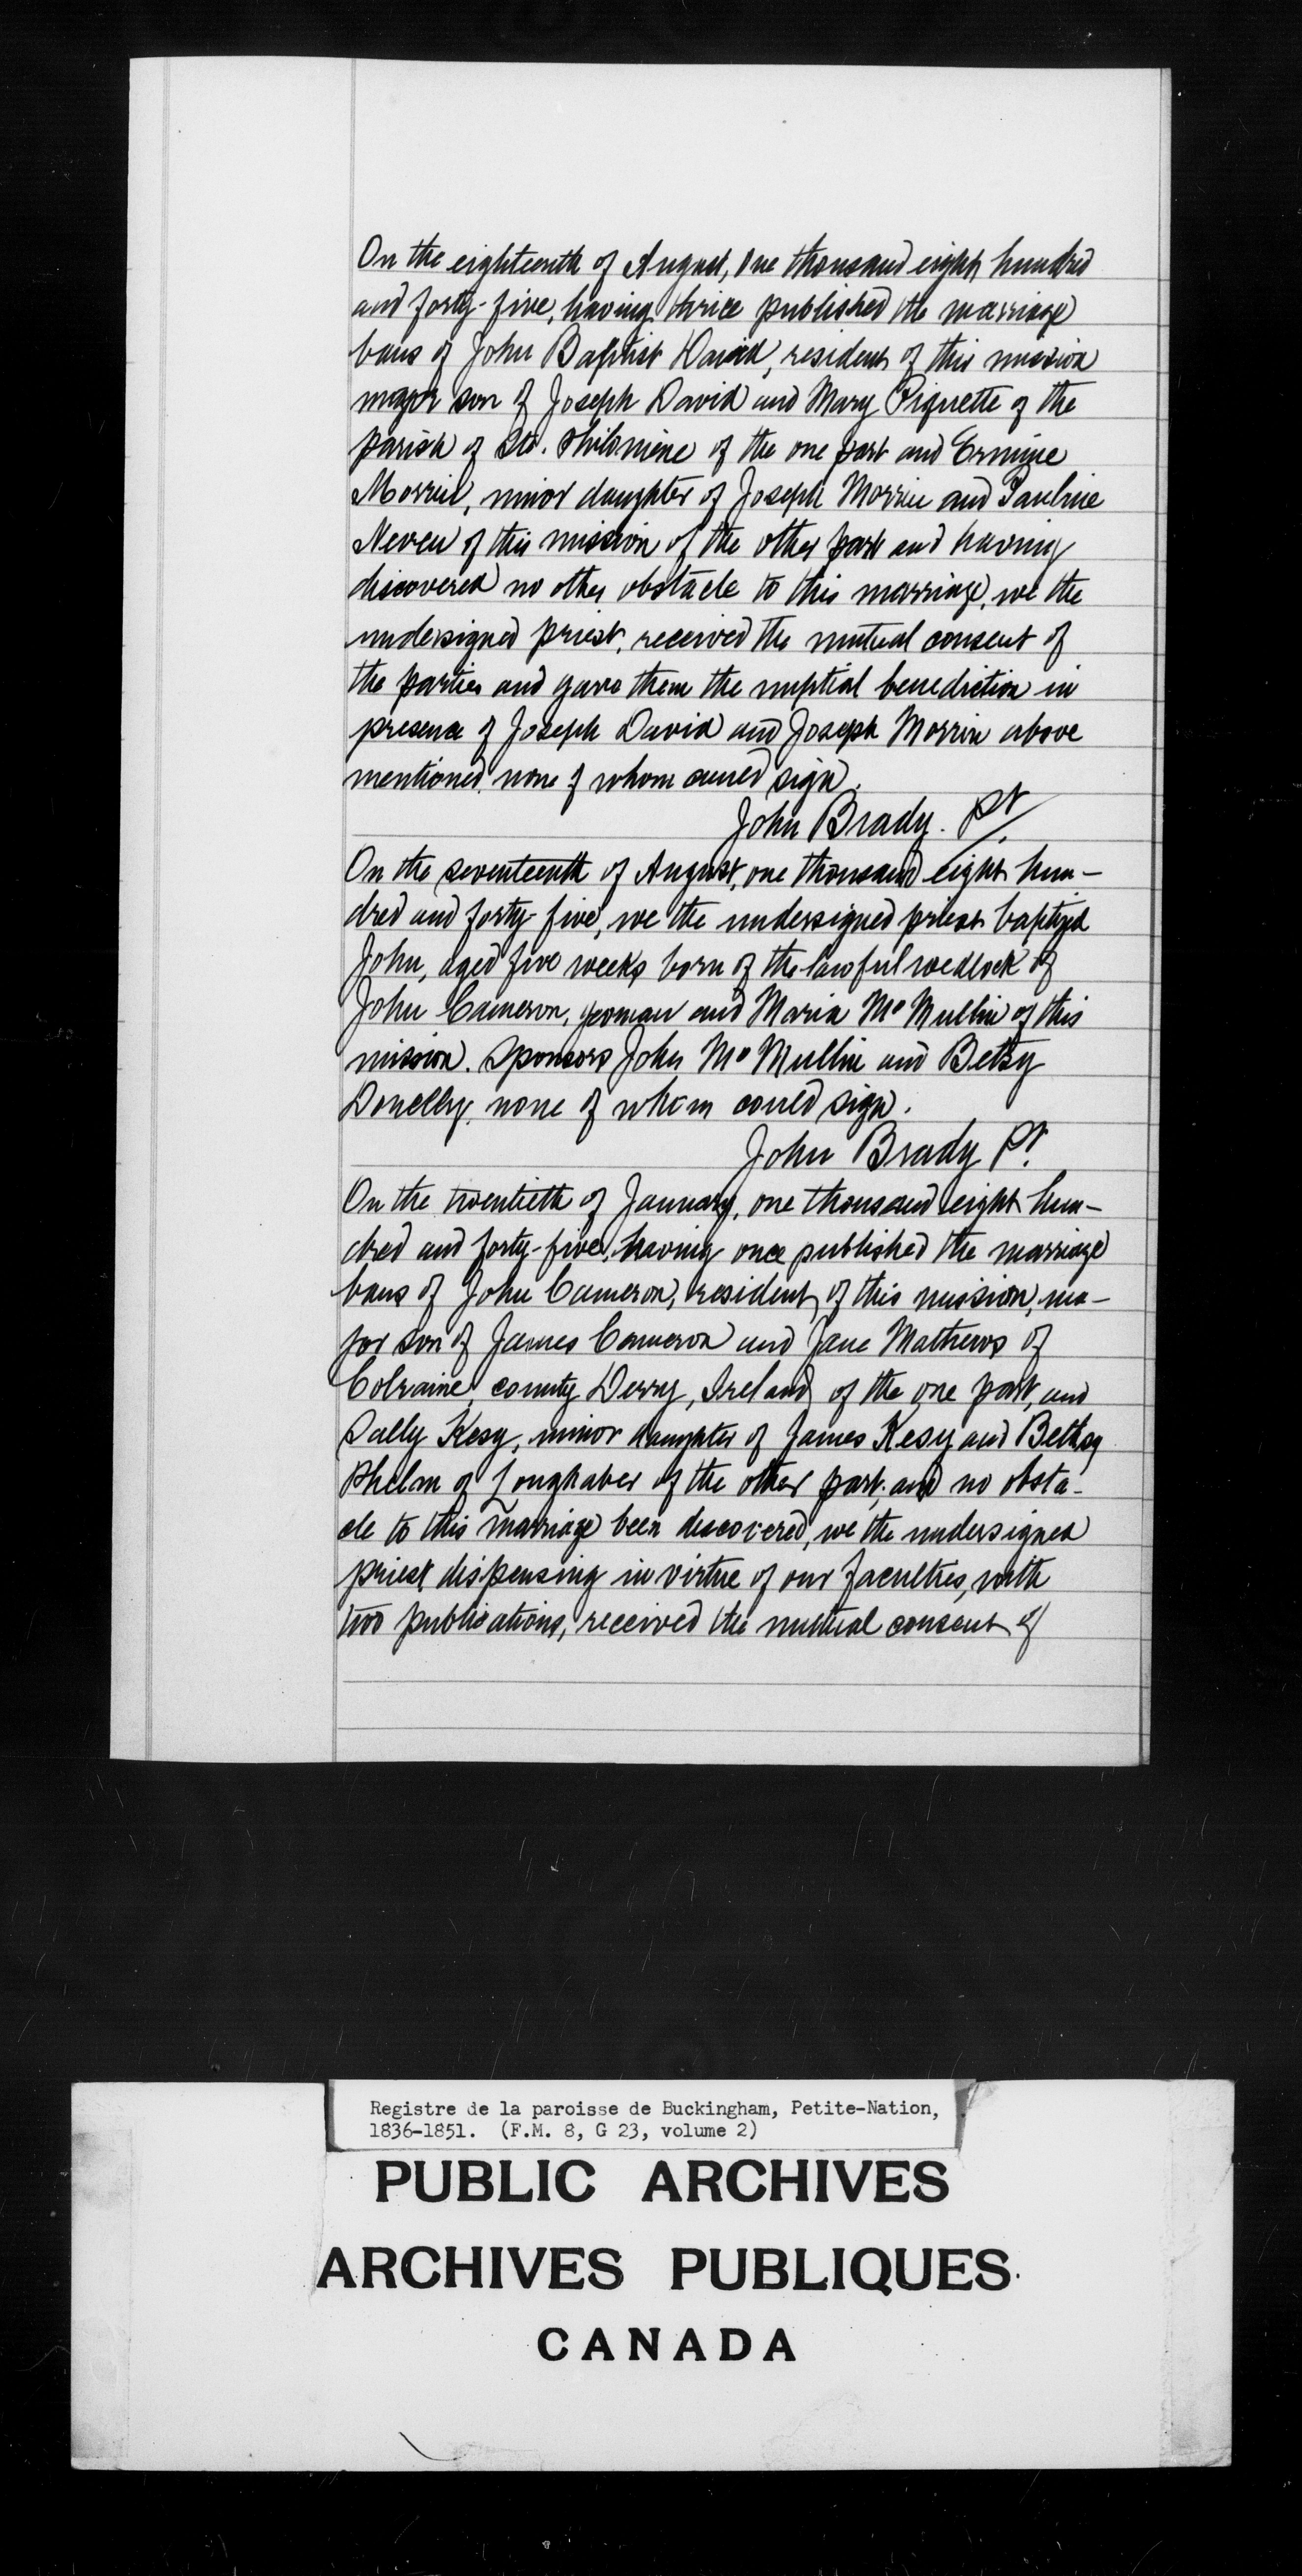 On the eighteenth of August, one thousand eight hundred
and forty-five, having thrice published the marriage
bans of John Baptist David, resident of this mission
major son of Joseph David and Mary Piquette of the
parish of Ste. Philomène of the one part and Ermine
Morrin, minor daughter of Joseph Morrin and Pauline
Neveu of this mission of the other part and having
discovered no other obstacle to this marriage, we the
undersigned priest, received the mutual consent of
the parties and gave them the nuptial benediction in
presence of Joseph David and Joseph Morrin above
mentioned, none of whom could sign.
John Brady. Pt.
On the seventeenth of August, one thousand eight hun-
dred and forty-five, we the undersigned priest baptized
John, aged five weeks born of the lawful wedlock of
John Cameron, yeoman and Maria Mc Mullin of this
mission. Sponsors John Mc Mullin and Betsy
Donelly, none of whom could sign.
John Brady Pt.
On the twentieth of January, one thousand eight hun-
dred and forty-five, having once published the marriage
bans of John Cameron, resident of this mission, ma-
jor son of James Cameron and Jane Mathews of
Colraine, county Derry, Ireland of the one part, and
Sally Kesy, minor daughter of James Kesy and Bethsy
Phelm of Loughaber of the other part, and no obsta-
cle to this marriage been discovered, we the undersigned
priest dispensing in virtue of our faculties, with
two publications, received the mutual consent of
Registre de la paroisse de Buckingham, Petite-Nation,
1836-1851. (F.M. 8, G 23, volume 2)
PUBLIC ARCHIVES
ARCHIVES PUBLIQUES
CANADA